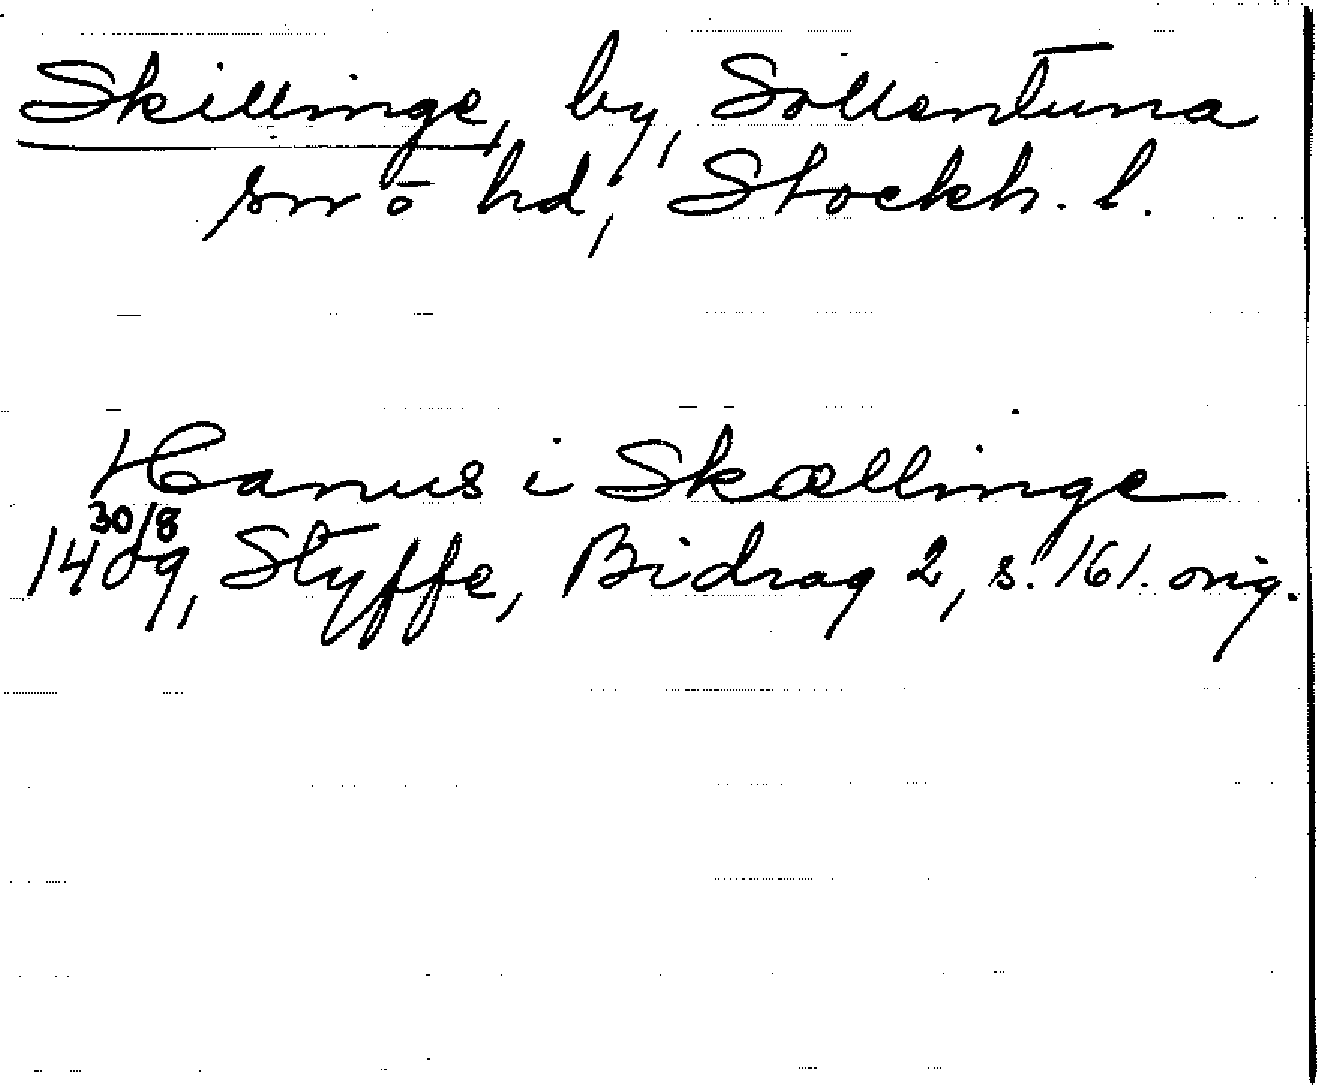 Skillinge, by, Sollentuna
sn o hd, Stockh. l.
Hanus i Skællinge
30/8
1409, Styffe, Bidrag 2, s. 161. orig.